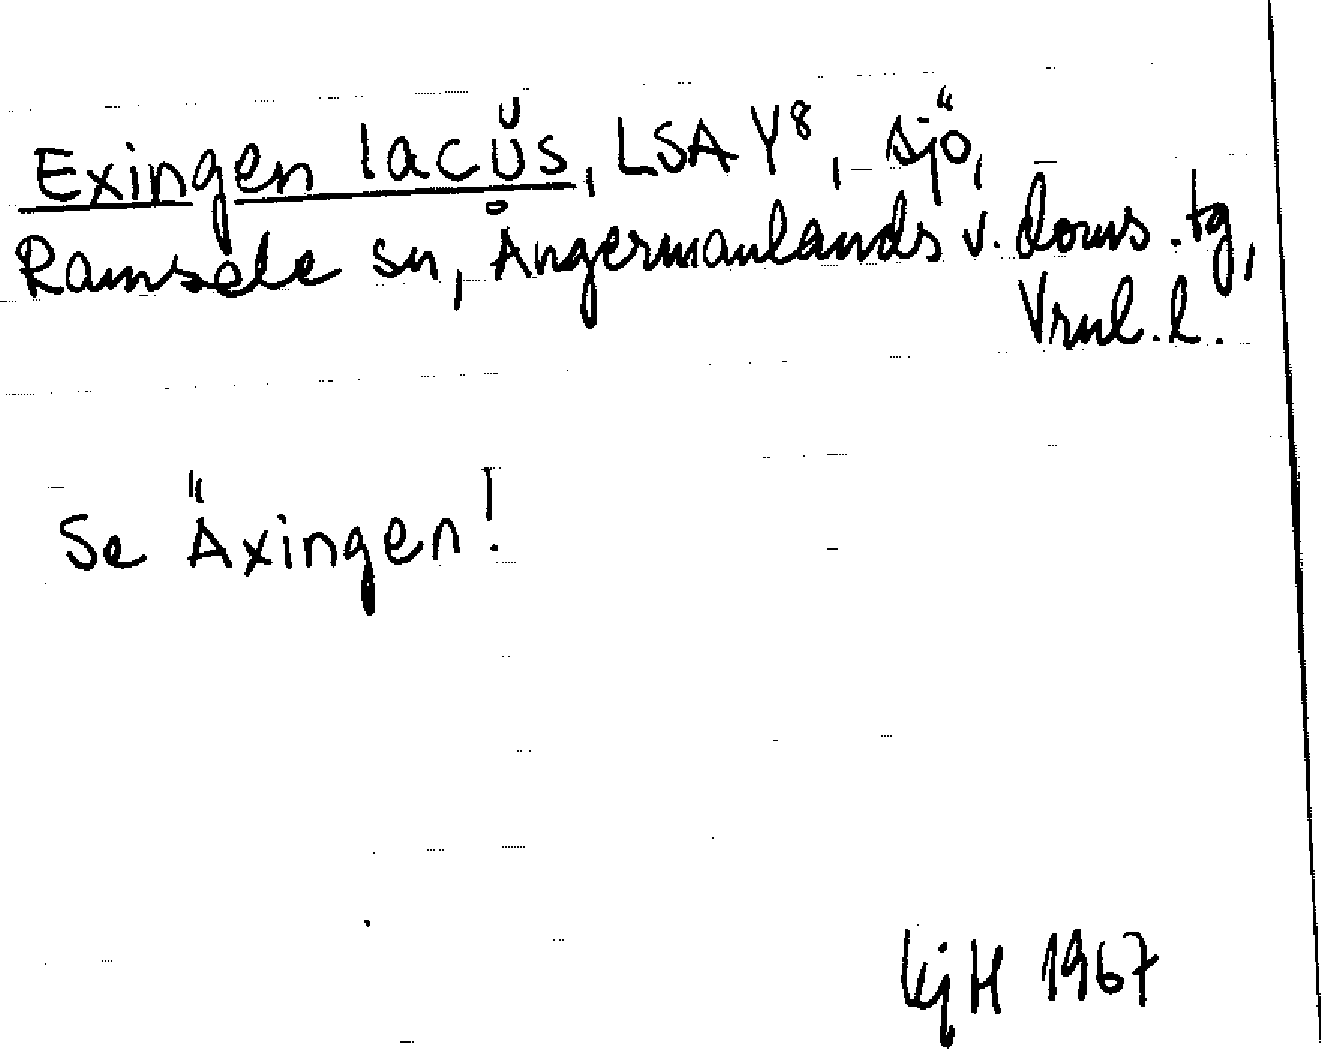 Exingen lacŭs, LSA Y⁸, sjö,
Ramsele sn, Ångermanlands v. doms.tg,
Vrnl. l.
Se Äxingen!
KjH 1967